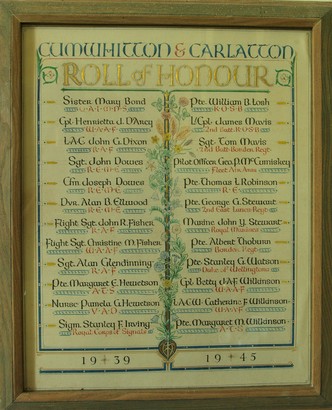 CUMWHITTON & CARLATTON
ROLL of HONOUR
Sister Mary Bond
Q·A·I·M·N·S
Cpl. Henrietta J. D'Arcy
W·A·A·F
L.A.C. John G. Dixon
R·A·F
Sgt. John Dowes
R·E·M·E
Cfn. Joseph Dowes
R·E·M·E
Dvr. Alan B. Ellwood
R·E·M·E
Flight Sgt. John R. Fisher
R·A·F
Flight Sgt. Christine M. Fisher
W·A·A·F
Sgt. Alan Glendinning
R·A·F
Pte. Margaret E. Hewetson
A·T·S
Nurse Pamela G. Hewetson
V·A·D
Sigm. Stanley F. Irving
Royal Corps of Signals
Pte. William B. Losh
K·O·S·B
L/Cpl. James Mavis
2nd Batt. K·O·S·B
Sgt. Tom Mavis
Batt. Border Regt.
Pilot Officer Geo. P. McCumiskey
Fleet Air Arm
Pte. Thomas I. Robinson
R·E
Pte. George S. Stewart
2nd East Lancs Regt.
Marine John Y. Stewart
Royal Marines
Pte. Albert Thoburn
Border Regt.
Pte. Stanley G. Watson
Duke of Wellingtons
Cpl. Betty J. A.F. Wilkinson
W·A·A·F
L.A.C.W. Catherine F. Wilkinson
W·A·A·F
Pte. Margaret M. Wilkinson
A·T·S
1939 1945